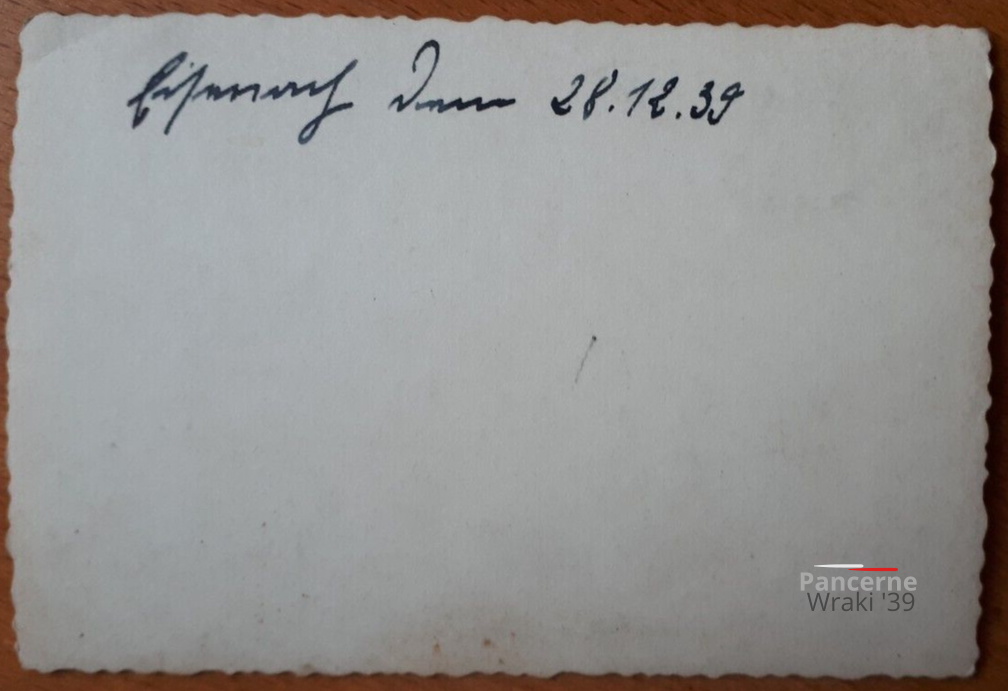 Eisenach dem 28.12.39
Pancerne
Wraki '39